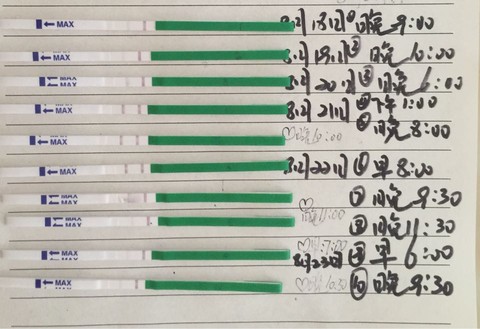 MAX 8月18日① 晚9:00
MAX 8月19日② 晚10:00
MAX 8月20日③ 晚6:00
MAX 8月21日④ 下午1:00
MAX ⑤ 晚8:00
MAX 8月22日⑥ 早8:00
MAX ⑦ 晚9:30
MAX 晚11:00 ⑧ 晚11:30
MAX 8月23日 ⑨ 早6:00
MAX 晚10:30 ⑩ 晚9:30